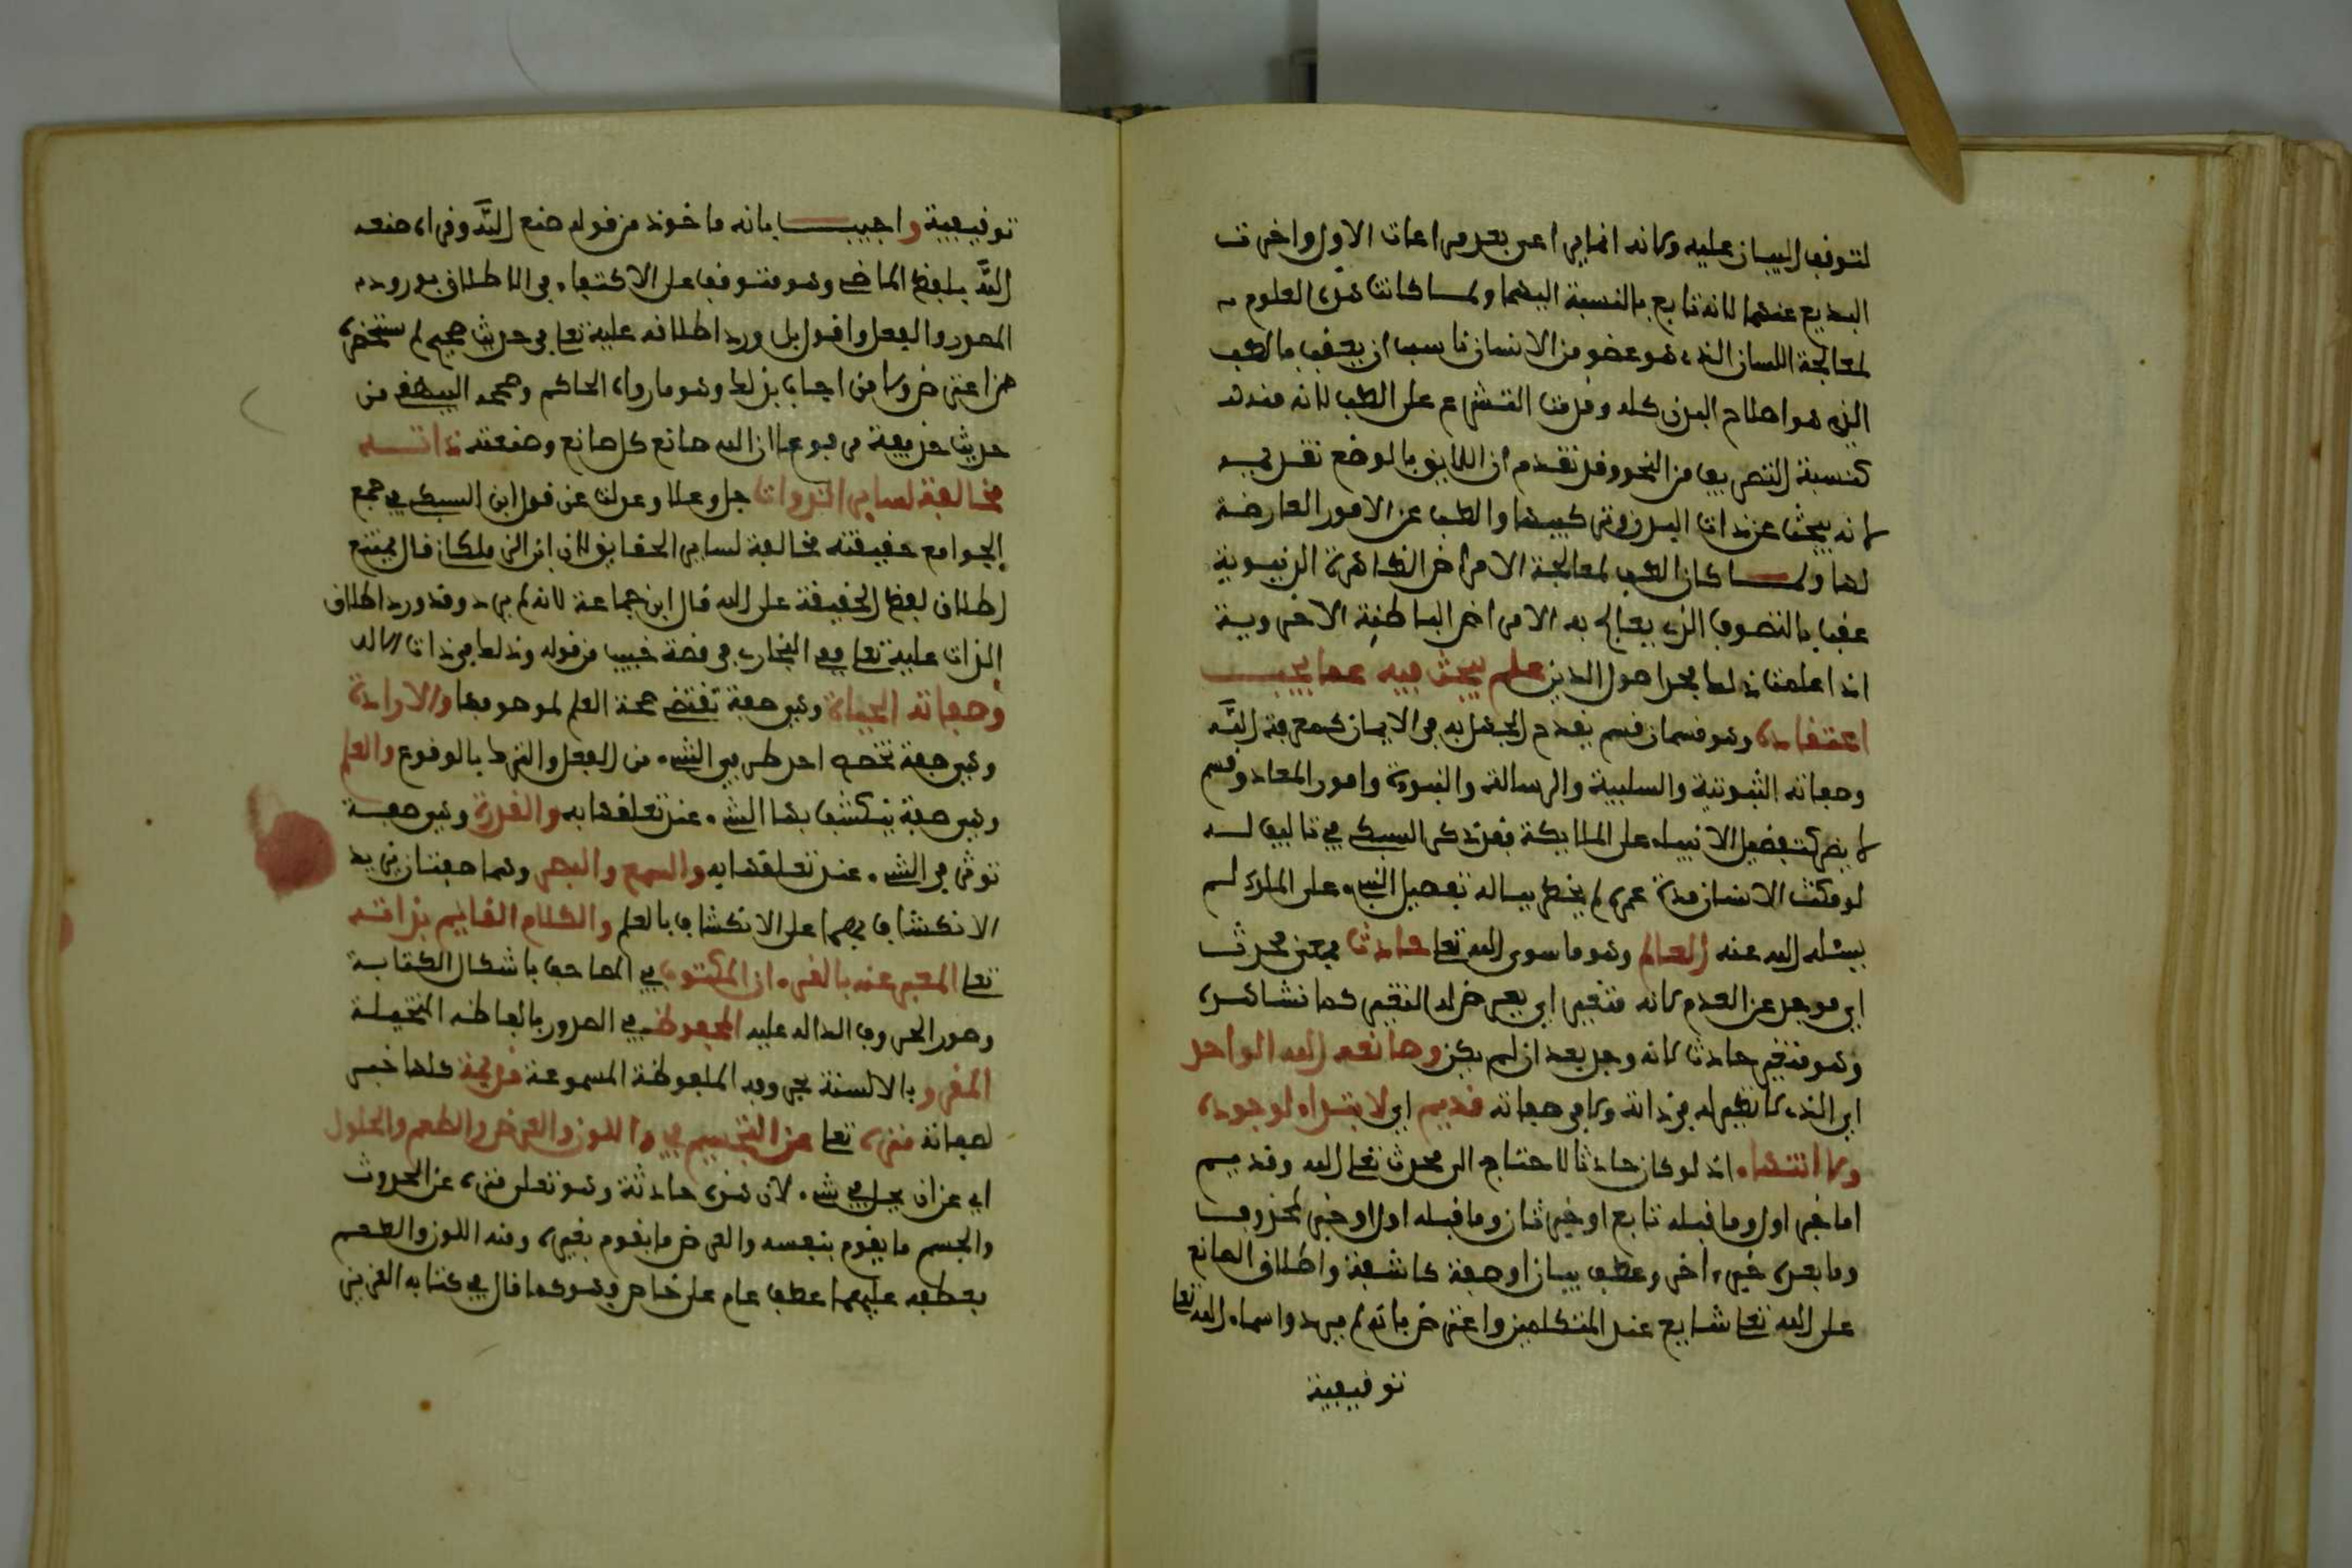 لتوقف البيان عليه ولانه انما يراعى بعد مراعات الاول واخرت
البديع عنهما لانه تابع بالنسبة اليهما ولما كانت هذه العلوم
لمعالجة اللسان الذى هو عضو من الانسان ناسب ان يعقب بالطب
الذى هو اصلاح البدن كله وقدمت التشريح على الطب لانه منه
كنسبة التصريف من النحو وقد تقدم ان اللايق بالوضع تقديمه
لانه يبحث عن ذات البدن وتركيبها والطب عن الامور العارضة
لها ولما كان الطب لمعالجة الامراض الظاهرة الدنيوية
عقب بالتصوف الذى يعالج به الامراض الباطنة الاخروية
اذا علمت ذلك فحد اصول الدين علم يبحث فيه عما يجب
اعتقاده وهو قسمان قسم يقدح الجهل به فى الايمان كمعرفة الله
وصفاته الثبوتية والسلبية والرسالة والنبوة وامور المعاد وقسم
لا يضر كتفضيل الانبياء على الملايكة فقد ذكر السبكى فى تاليف له
لو مكث الانسان مدة عمره لم يخطر بباله تفضيل النبى على الملك لم
يسئله الله عنه العالم وهو ما سوى الله تعا حادث بمعنى محدث
اى موجد عن العدم لانه متغير اى يعرض له التغير كما نشاهده
وهو متغير حادث لانه وجد بعد ان لم يكن وصانعه الله الواحد
اى الذى لا نظير له فى ذاته ولا فى صفاته قديم اى لا ابتداء لوجوده
ولا انتهاء اذ لو كان حادثا لاحتاج الى محدث تعا الله وقديم
اما خبر اول وما قبله تابع او خبر ثان وما قبله اول او خبر لمحذوف
وما بعده خبر اخر وعطف بيان او صفة كاشفة واطلاق الصانع
على الله تعا شايع عند المتكلمين واعترض بانه لم يرد واسماء الله تعا
توقيفية
توقيفية واجيب بانه ماخوذ من قوله صنع الله وقراءة صنعه
الله بلفظ الماضى وهو متوقف على الاكتفاء فى الاطلاق بورود
المصدر والفعل واقول بل ورد اطلاقه عليه تعا فى حديث صحيح لم يستحضره
من اعترض ولا من اجاب بذلك وهو ما رواه الحاكم وصححه البيهقى من
حديث حذيفة مرفوعا ان الله صانع كل صانع وصنعته ذاته
مخالفة لساير الذوات جل وعلا وعدلت عن قول ابن السبكى فى جمع
الجوامع حقيقته مخالفة لساير الحقايق لان ابن الزملكان قال يمتنع
اطلاق لفظ الحقيقة على الله قال ابن جماعة لانه لم يرد وقد ورد اطلاق
الذات عليه تعا ففى البخارى فى قصة خبيب من قوله وذلك فى ذات الاله
وصفاته الحياة وهى صفة تقتضى صحة العلم لموصوفها والارادة
وهى صفة تخصص احد طرفى الشىء من الفعل والترك بالوقوع والعلم
وهى صفة ينكشف بها الشىء عند تعلقها به والقدرة وهى صفة
توثر فى الشىء عند تعلقها به والسمع والبصر وهما صفتان يزيد
الانكشاف بهما على الانكشاف بالعلم والكلام القايم بذاته
تعا المعبر عنه بالقرءان المكتوب فى المصاحف باشكال الكتابة
وصور الحروف الدالة عليه المحفوظ فى الصدور بالفاظه المتخيلة
المقرو بالالسنة بحروفه الملفوظة المسموعة قديمة كلها خبر
لصفاته منزه تعا عن التجسيم واللون والعرض والطعم والحلول
اى عن ان يحل فى شىء لان هذه حادثة وهو تعلى منزه عن الحدوث
والجسم ما يقوم بنفسه والعرض ما يقوم بغيره ومنه اللون والطعم
بعطفه عليهما عطف عام على خاص وهو كما قال فى كتابه العزيز